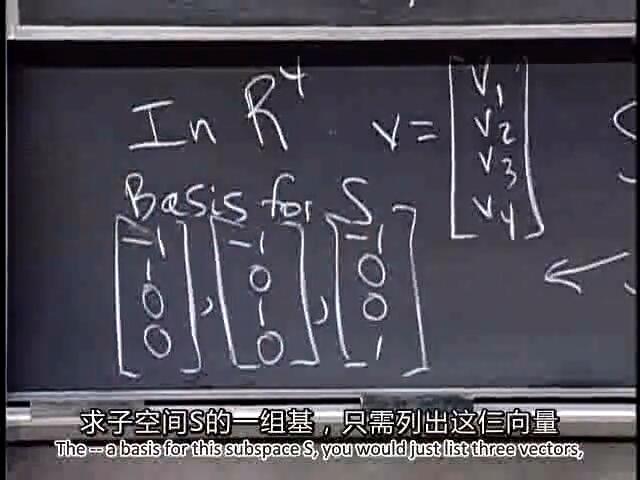 In R⁴ v = [v₁ v₂ v₃ v₄]
Basis for S
[-1 1 0 0], [-1 0 1 0], [-1 0 0 1]
求子空间S的一组基，只需列出这仨向量
The -- a basis for this subspace S, you would just list three vectors,